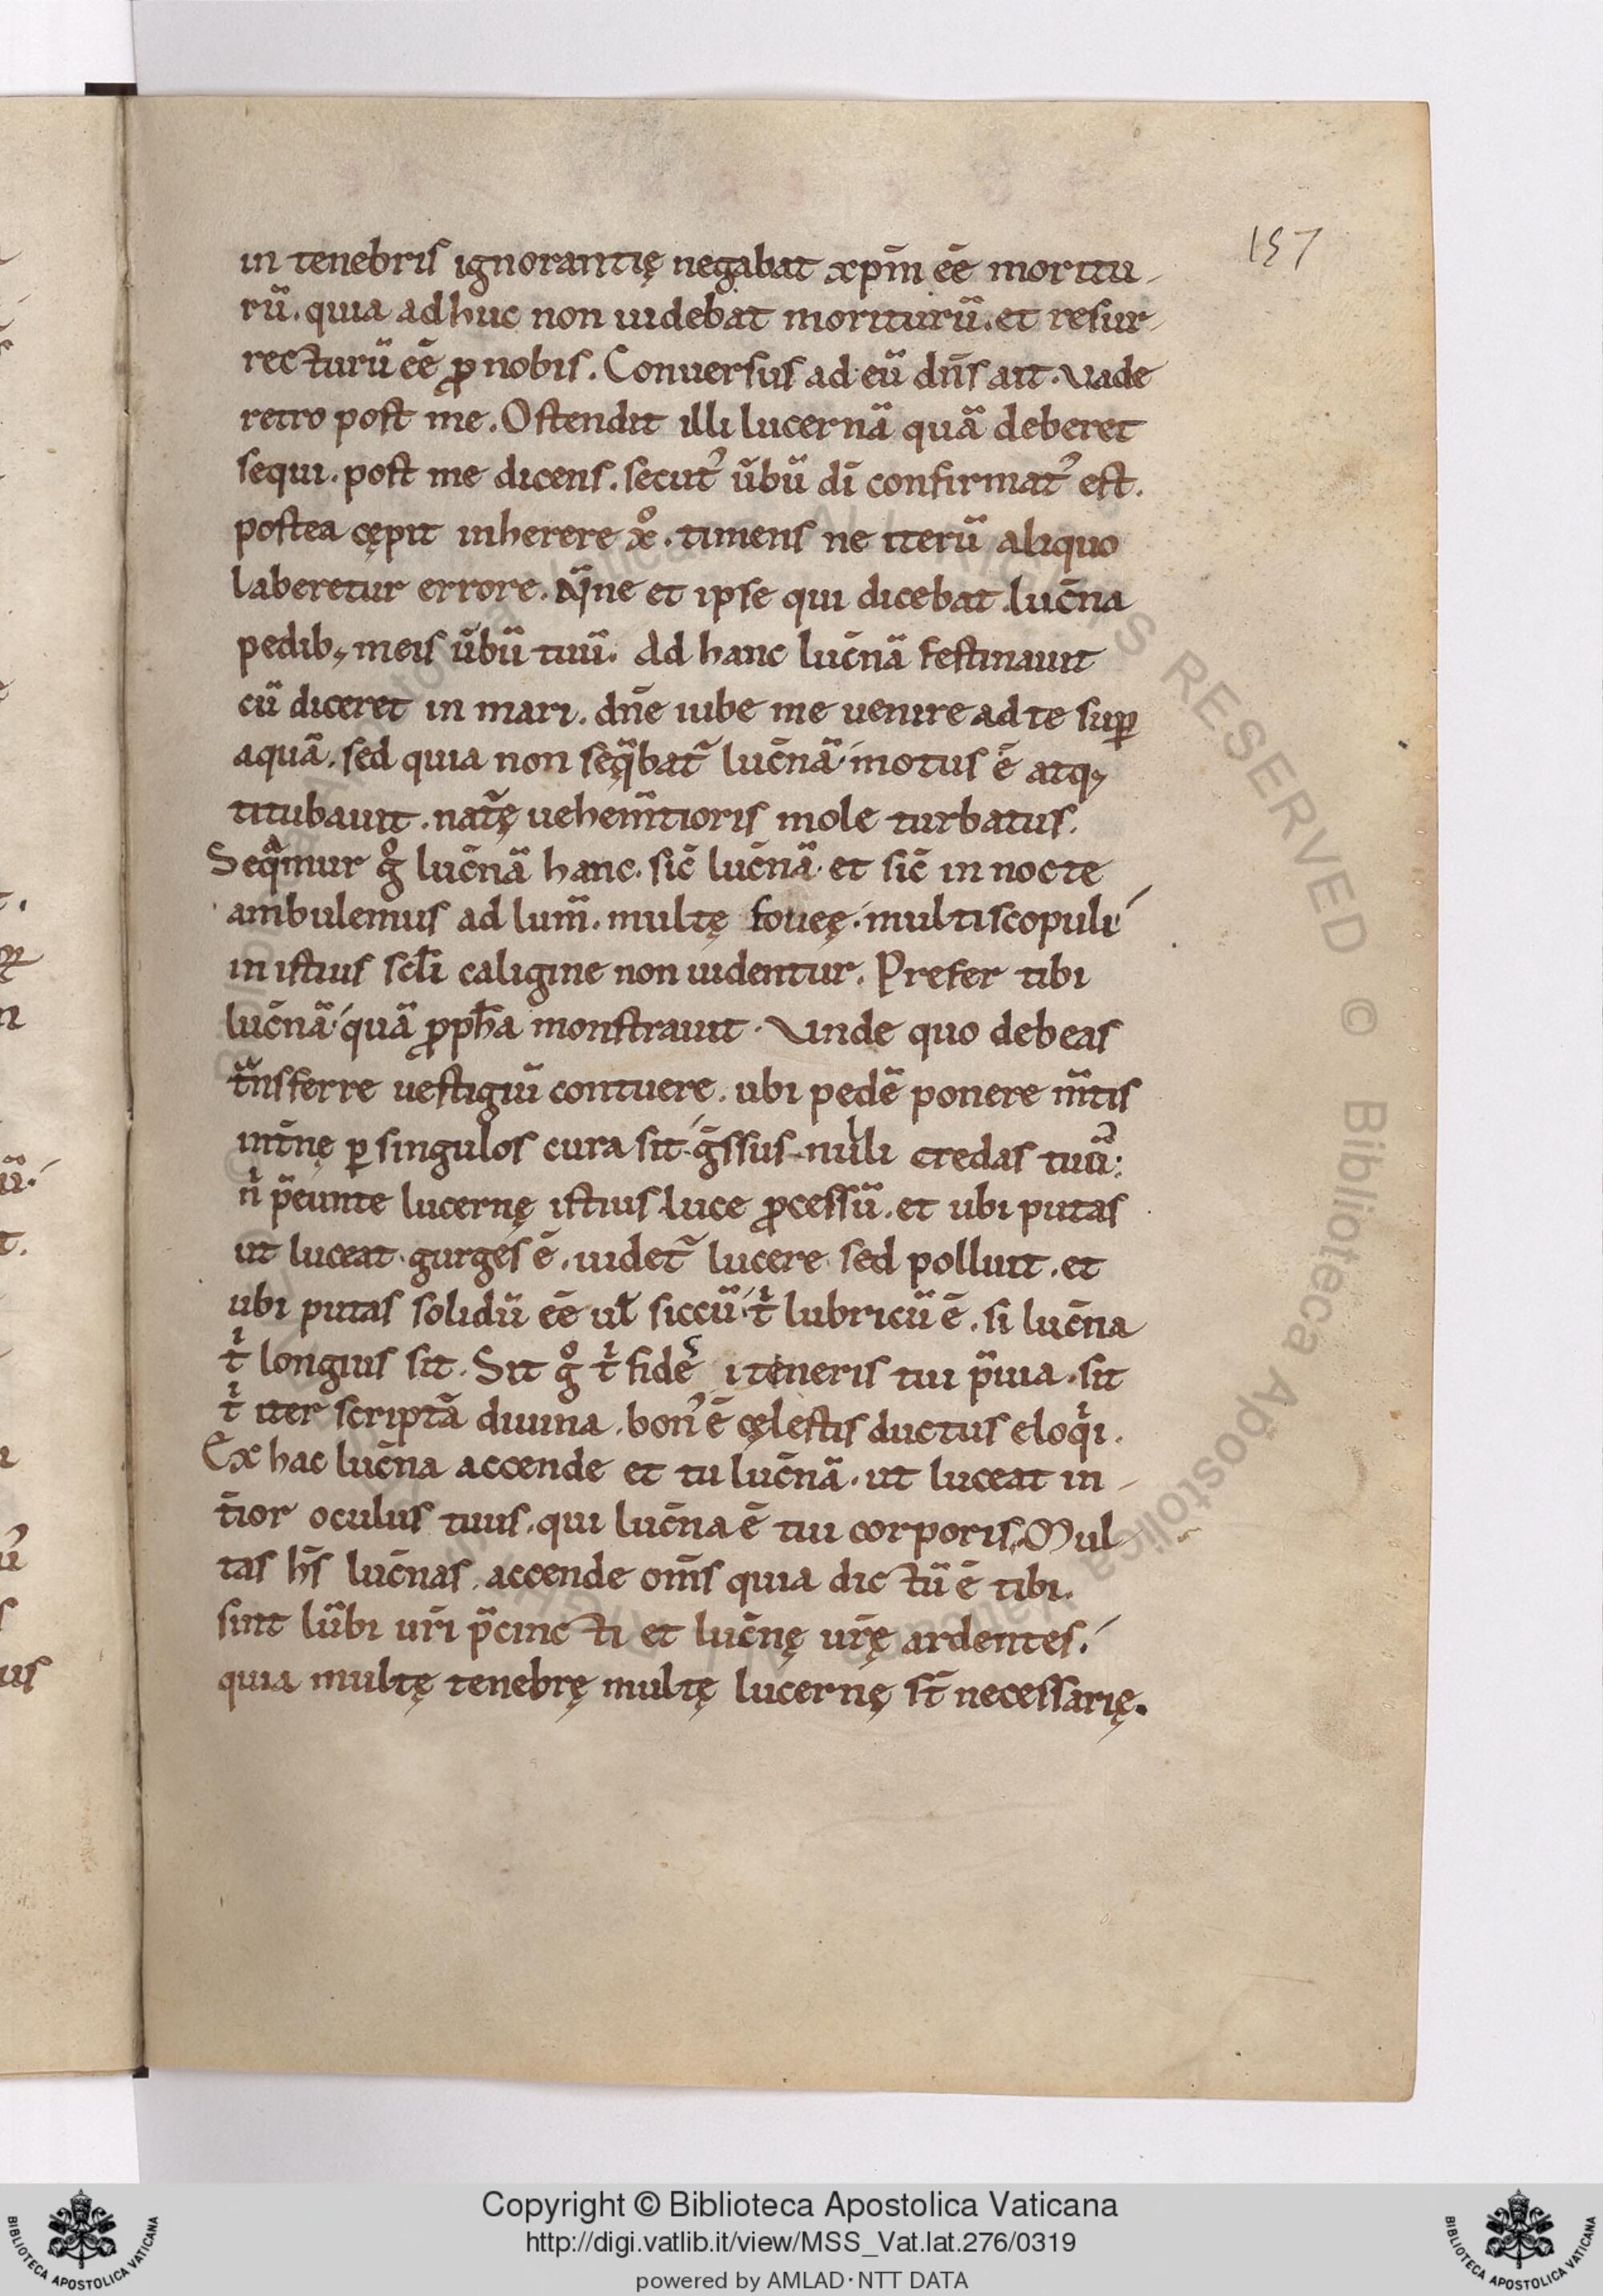 157
in tenebris ignorantię negabat xp̄m ēē moritu-
rū. quia adhuc non uidebat moriturū. et resur-
recturū ēē ꝓ nobis. Conuersus ad eū dn̄s ait. Vade
retro post me. Ostendit illi lucernā quā deberet
sequi. post me dicens. secut᾽ ūbū dī confirmat᾽ est.
postea cępit inherere xͦ. timens ne iterū aliquo
laberetur errore. et ipse qui dicebat. luc̄na
pedib; meis ūbū tuū. Ad hanc luc̄nā festinauit
cū diceret in mari. dn̄e iube me uenire ad te suꝑ
aquā. sed quia non seq̄bat᷑ luc̄nā motus ē atq;
titubauit. nat᷑ę uehem̄tioris mole turbatus.
Seqᵃmur gͦ luc̄nā hanc. sic̄ luc̄nā. et sic̄ in nocte
ambulemus ad lum̄. multę foueę. multi scopuli
in istius scl̄i caligine non uidentur. Prefer tibi
luc̄nā quā ꝓph̄a monstrauit. Vnde quo debeas
t̄nsferre uestigiū contuere. ubi pedē ponere m̄tis
int̄nę ꝑ singulos cura sit. ḡssus nulli credas tuū:
nͥ p̄eunte lucernę istius luce ꝓcessū. et ubi putas
ut luceat. gurges ē. uidet᷑ lucere sed polluit. et
ubi putas solidū ēē ul̄ siccū. tͥ lubricū ē. si luc̄na
tͥ longius sit. Sit gͦ tͥ fides itineris tui p̄uia. sit
tͥ iter scriptā diuina. bon᾽ ē cęlestis ductus eloqͥi.
Ex hac luc̄na accende et tu luc̄nā. ut luceat in-
t̄ior oculus tuus. qui luc̄na ē tui corporis. Mul
tas hs̄ luc̄nas. accende om̄s quia dictū ē tibi.
sint lūbi ur̄i p̄cincti et luc̄nę ur̄ę ardentes.
quia multę tenebrę multę lucernę st̄ necessarię.
Copyright © Biblioteca Apostolica Vaticana
http://digi.vatlib.it/view/MSS_Vat.lat.276/0319
powered by AMLAD·NTT DATA
BIBLIOTECA APOSTOLICA VATICANA
BIBLIOTECA APOSTOLICA VATICANA